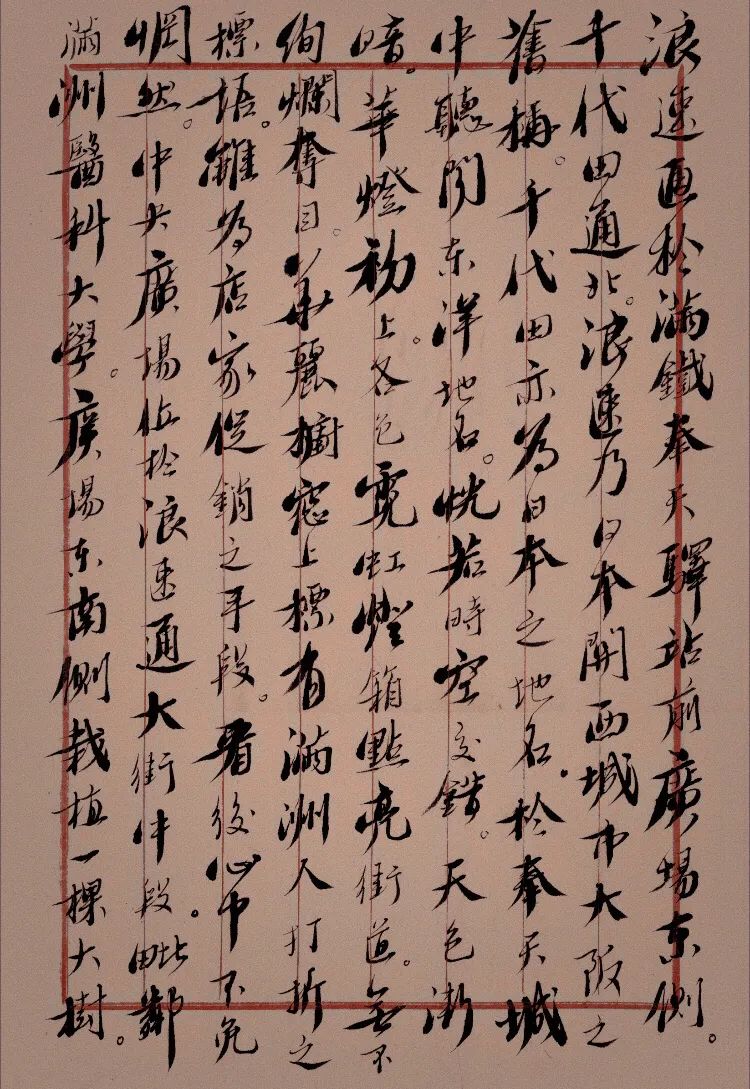 浪速通於滿鐵奉天驛站前廣場東側。
千代田通北。浪速乃日本關西城市大阪之
舊稱。千代田亦為日本之地名。於奉天城
中聽聞东洋地名。恍若時空交錯。天色漸
暗。華燈初上。各色霓虹燈箱點亮街道。無不
絢爛奪目。華麗櫥窓上標有滿洲人打折之
標語。雖為店家促銷之手段。看後心中不免
惘然。中央廣場位於浪速通大街中段。毗鄰
滿洲醫科大學。廣場东南側栽植一棵大樹。